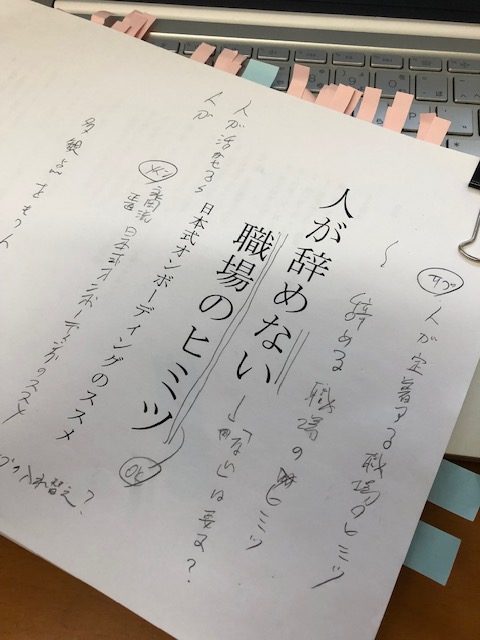 サブ
人が定着する職場のヒミツ
辞める職場のヒミツ
人が辞めない
→「ない」は要る?
職場のヒミツ
OK
日本式オンボーディングのススメ
人が活きる
人が
メイン
日本式オンボーディングのススメ
多観点をもつ人
入れ替え?